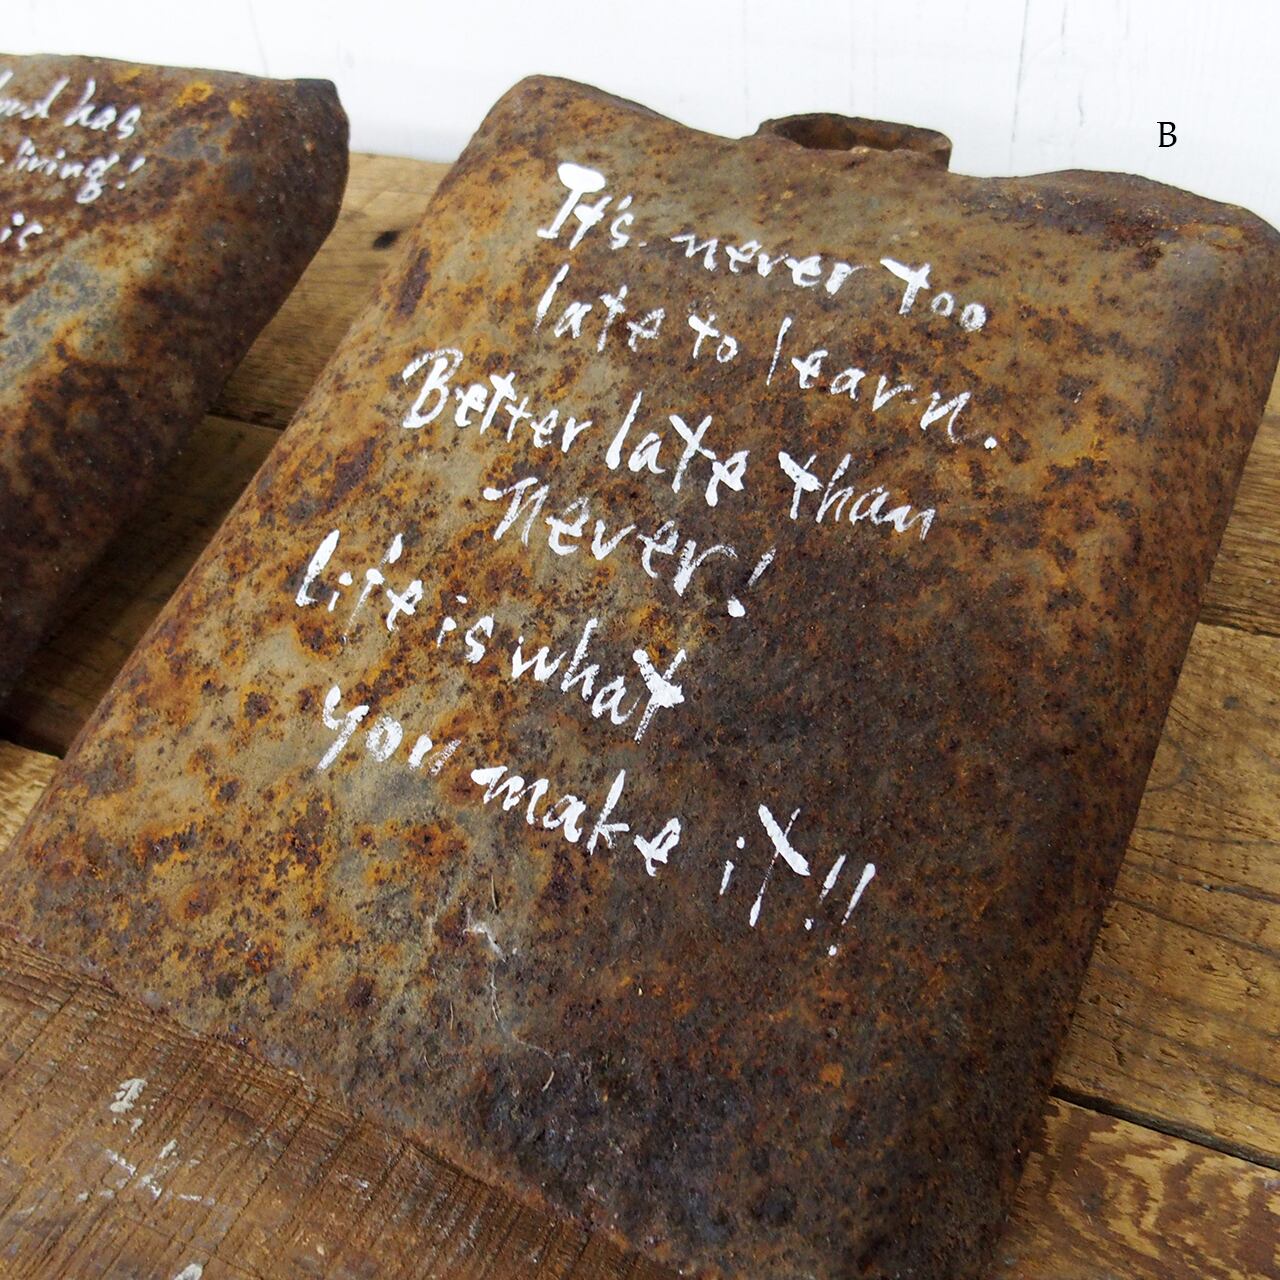 has
living!
is
B
It's never too
late to learn.
Better late than
never!
Life is what
you make it!!